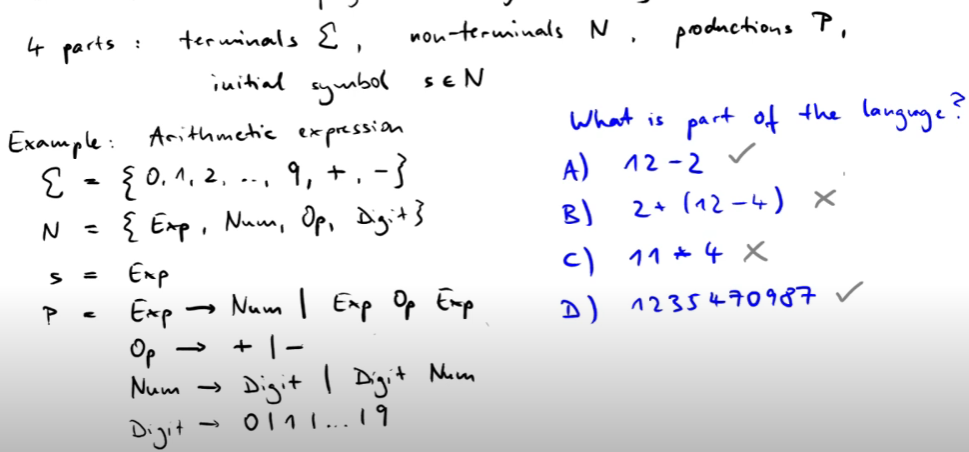 4 parts : terminals Σ, non-terminals N, productions P,
initial symbol s ∈ N
Example: Arithmetic expression
Σ = { 0, 1, 2, .., 9, +, - }
N = { Exp, Num, Op, Digit }
s = Exp
P = Exp → Num | Exp Op Exp
Op → + | -
Num → Digit | Digit Num
Digit → 0 | 1 | ... | 9
What is part of the languge?
A) 12 - 2 ✓
B) 2 + (12 - 4) ✗
C) 11 * 4 ✗
D) 1235470987 ✓